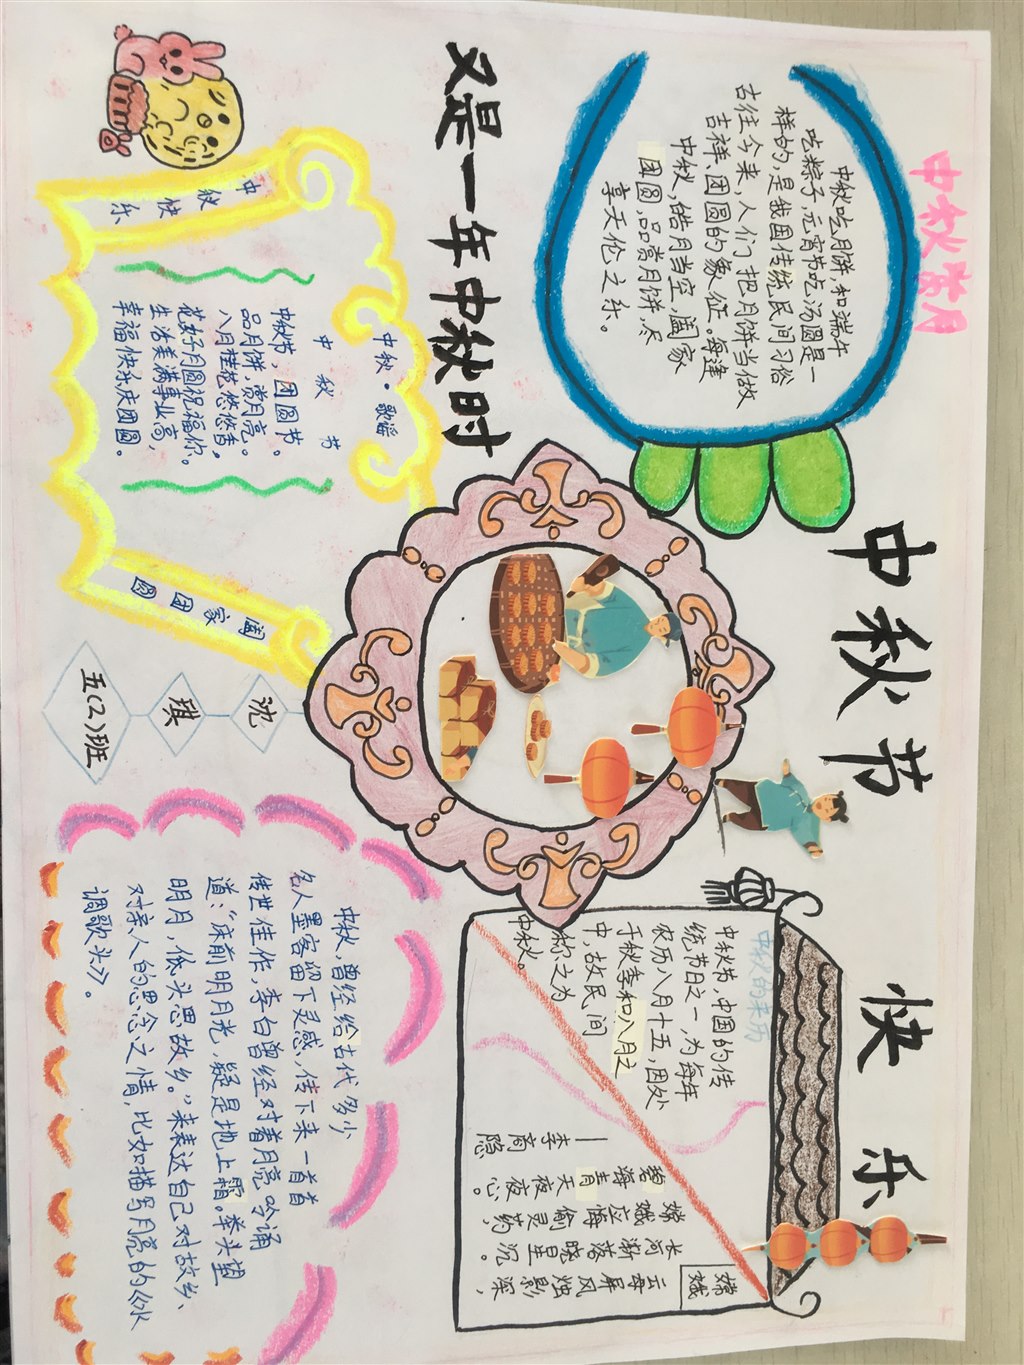 中秋节 快乐
中秋赏月
中秋吃月饼,和端午
吃粽子,元宵节吃汤圆是一
样的,是我国传统民间习俗
古往今来,人们把月饼当做
吉祥、团圆的象征。每逢
中秋,皓月当空,阖家
团圆,品尝月饼,尽
享天伦之乐。
又是一年中秋时
中秋快乐
中秋·歌谣
中秋节
中秋节,团圆节。
品月饼,赏月亮。
八月桂花悠悠香。
花好月圆祝福你。
生活美满事业高,
幸福快乐庆团圆。
阖家团圆
沈
琪
五(2)班
中秋的来历
中秋节,中国的传
统节日之一,为每年
农历八月十五,因处
于秋季和八月之
中,故民间
称之为
中秋。
嫦娥
云母屏风烛影深,
长河渐落晓星沉。
嫦娥应悔偷灵药,
碧海青天夜夜心。
—李商隐
中秋,曾经给古代多少
名人墨客留下灵感、传下来一首首
传世佳作,李白曾经对着月亮吟诵
道:“床前明月光,疑是地上霜。举头望
明月,低头思故乡。”来表达自己对故乡、
对亲人的思念之情,比如描写月亮的《水
调歌头》。